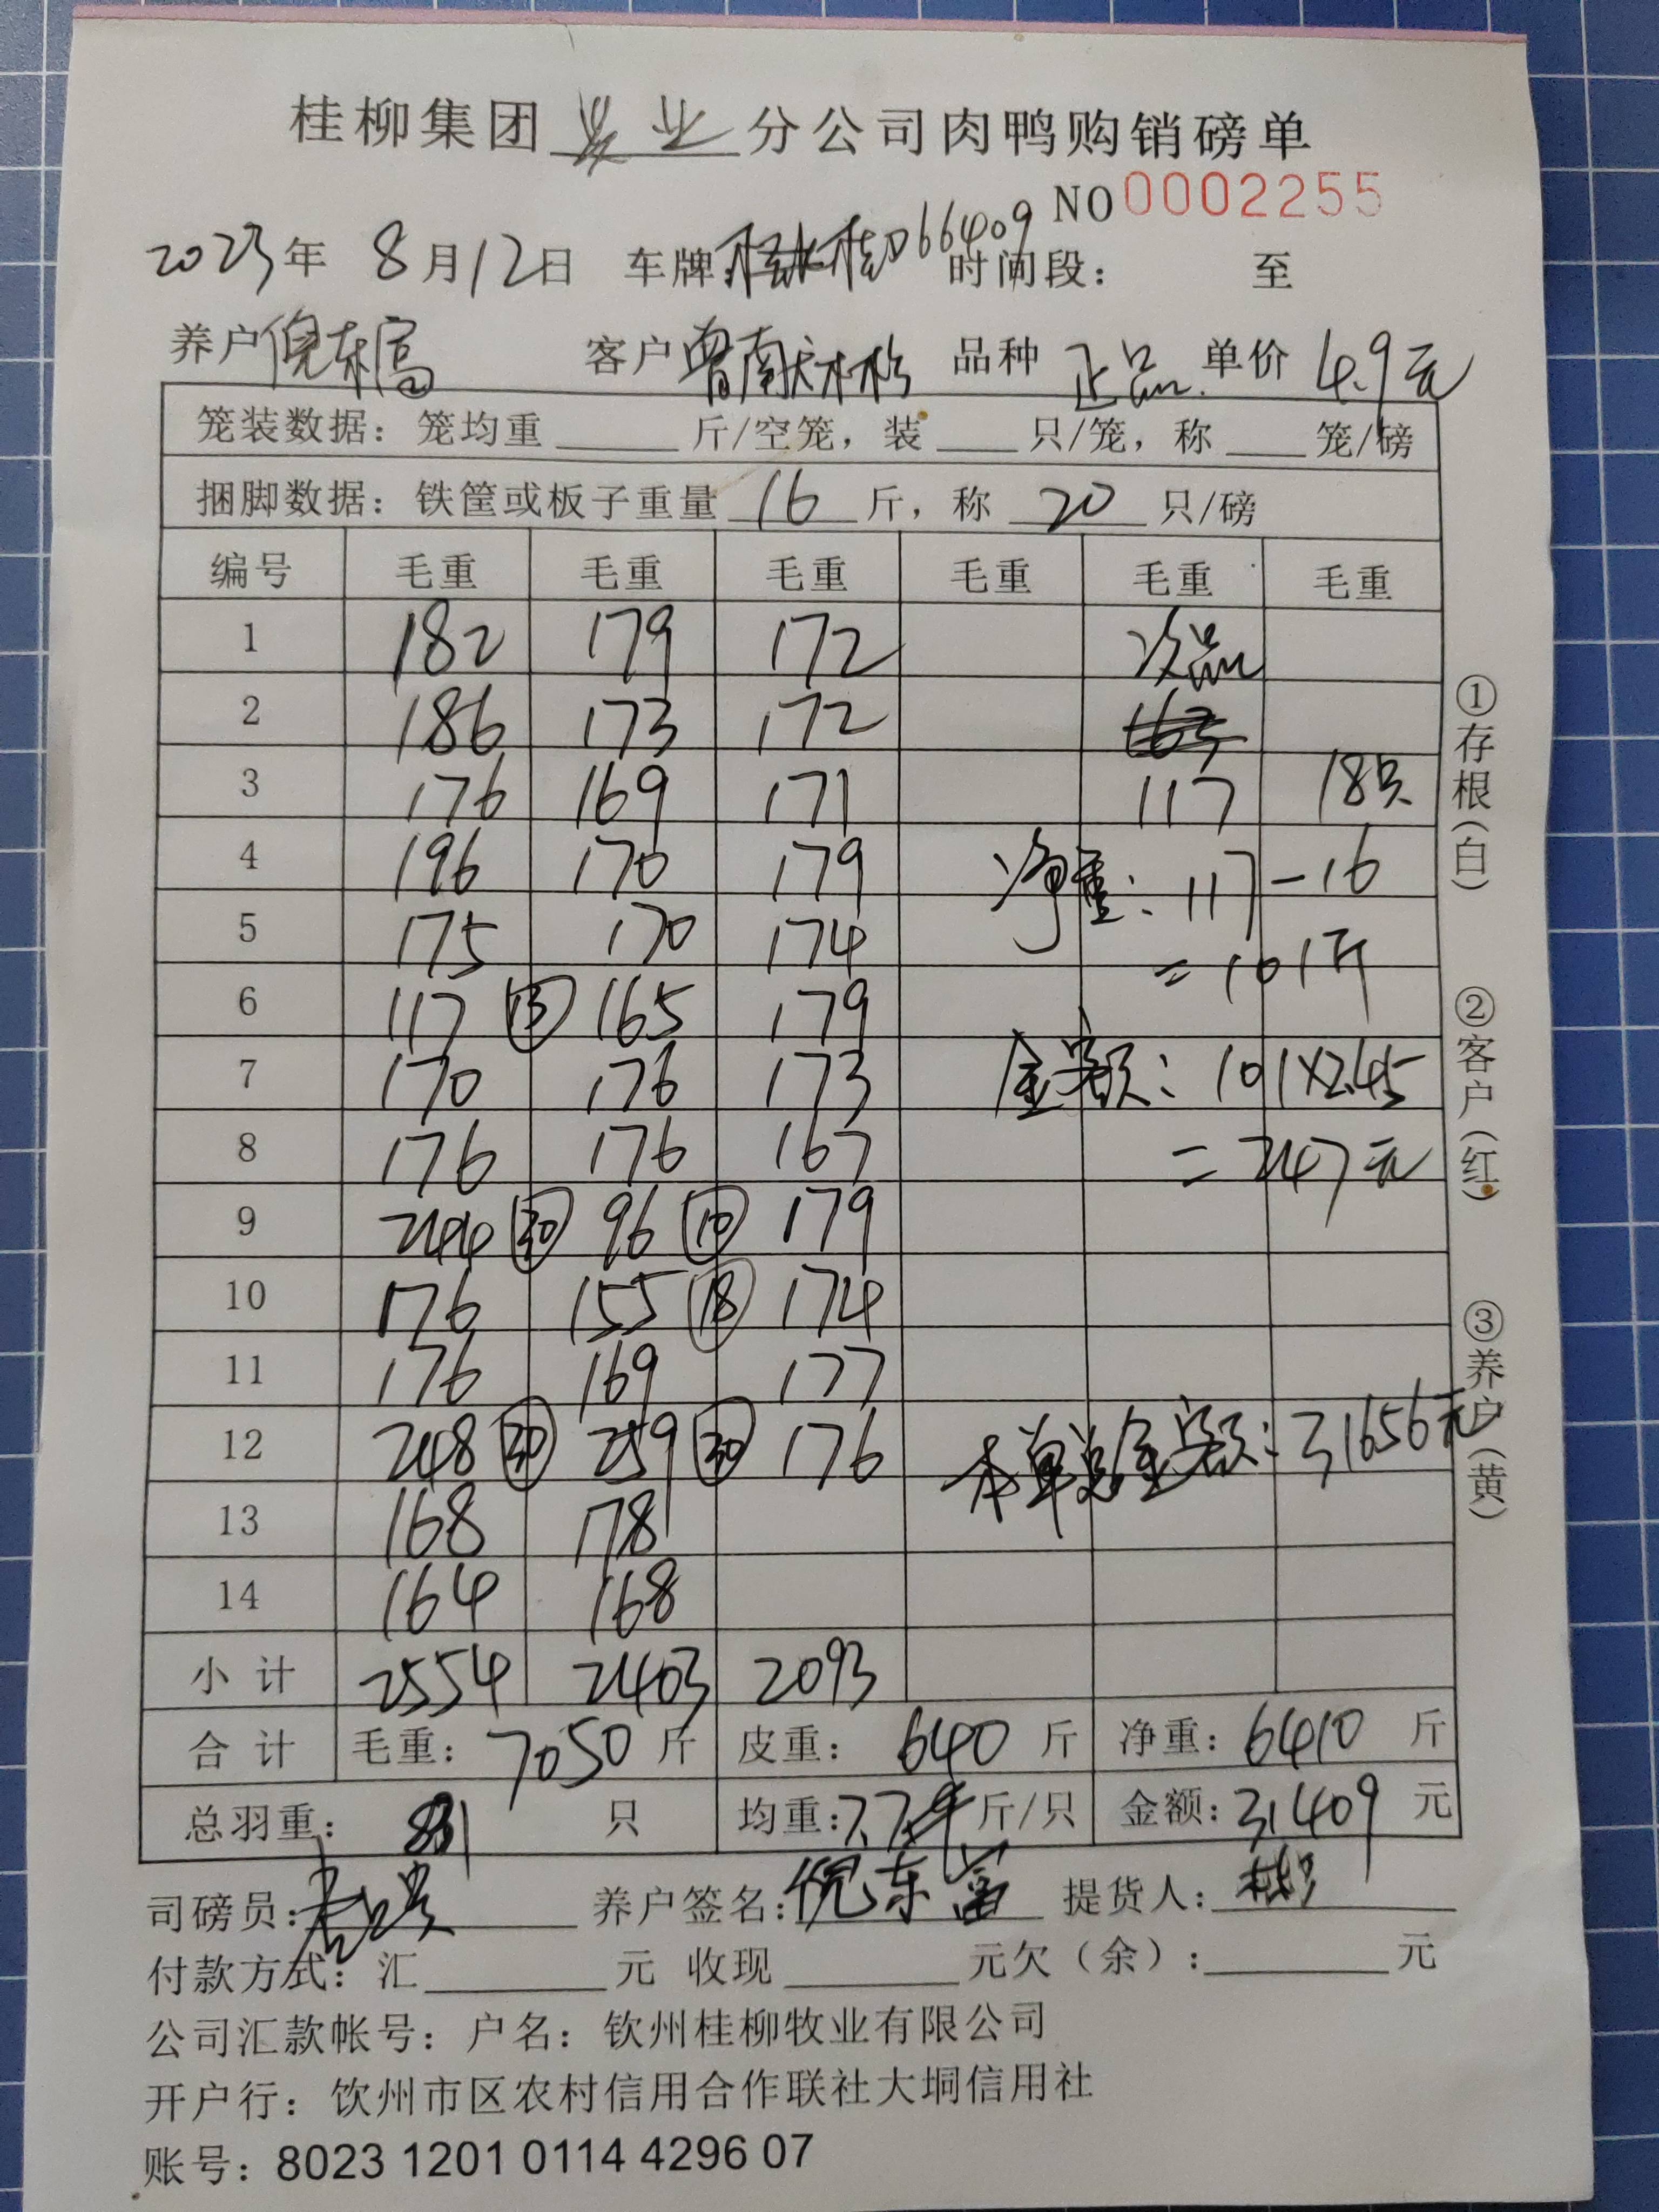 桂柳集团 业 分公司肉鸭购销磅单
NO 0002255
2023年 8月12日 车牌: 66409 时间段: 至
养户 倪东富 客户 曾南 品种 正品 单价 4.9元
笼装数据:笼均重 斤/空笼,装 只/笼,称 笼/磅
捆脚数据:铁筐或板子重量 16 斤,称 20 只/磅
编号 毛重 毛重 毛重 毛重 毛重 毛重
1 182 179 172 次品
2 186 173 172
3 176 169 171 117 18只
4 196 170 179 净重:117-16
5 175 170 174 =101斤
6 117 ⑬ 165 179
7 170 176 173 金额:101×2.45
8 176 176 167 =247元
9 244 ㉚ 96 ⑩ 179
10 176 155 ⑱ 174
11 176 169 177
12 248 ㉚ 259 ㉚ 176 本单总金额:31656元
13 168 178
14 164 168
小计 2554 2403 2093
合计 毛重:7050 斤 皮重:640 斤 净重:6410 斤
总羽重:831 只 均重:7.7 斤/只 金额:31409 元
司磅员: 养户签名:倪东富 提货人:
付款方式:汇 元 收现 元欠(余): 元
公司汇款帐号:户名:钦州桂柳牧业有限公司
开户行:饮州市区农村信用合作联社大垌信用社
账号:8023 1201 0114 4296 07
①存根(白)
②客户(红)
③养户(黄)